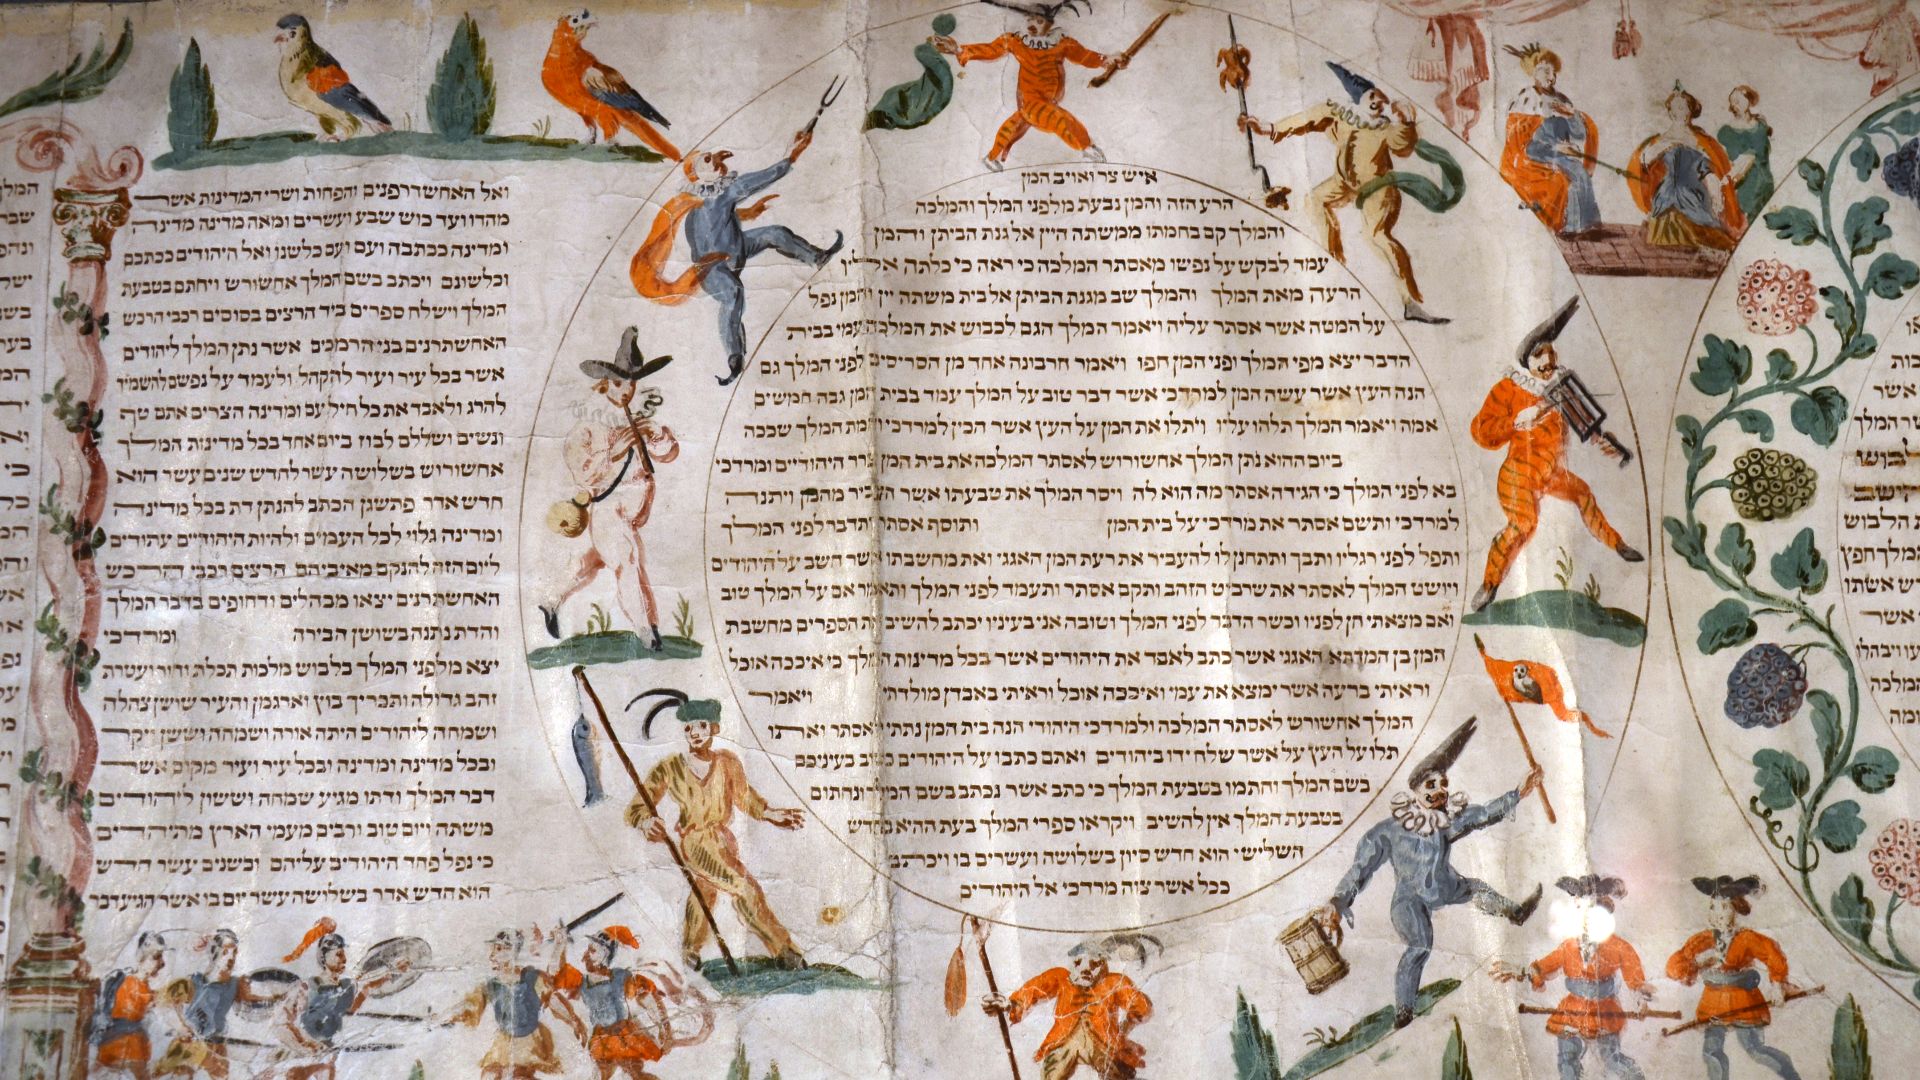 אשר
המלך
הלבוש
המלך חפץ
אשתו
אשר
ויבהלו
המלכה
איש צר ואויב המן
הרע הזה והמן נבעת מלפני המלך והמלכה
והמלך קם בחמתו ממשתה היין אל גנת הביתן והמן
עמד לבקש על נפשו מאסתר המלכה כי ראה כי כלתה אליו
הרעה מאת המלך והמלך שב מגנת הביתן אל בית משתה יין והמן נפל
על המטה אשר אסתר עליה ויאמר המלך הגם לכבוש את המלכה עמי בבית
הדבר יצא מפי המלך ופני המן חפו ויאמר חרבונה אחד מן הסריסים לפני המלך גם
הנה העץ אשר עשה המן למרדכי אשר דבר טוב על המלך עמד בבית המן גבה חמשים
אמה ויאמר המלך תלהו עליו ויתלו את המן על העץ אשר הכין למרדכי וחמת המלך שככה
ביום ההוא נתן המלך אחשורוש לאסתר המלכה את בית המן צרר היהודיים ומרדכי
בא לפני המלך כי הגידה אסתר מה הוא לה ויסר המלך את טבעתו אשר העביר מהמן ויתנה
למרדכי ותשם אסתר את מרדכי על בית המן ותוסף אסתר ותדבר לפני המלך
ותפל לפני רגליו ותבך ותתחנן לו להעביר את רעת המן האגגי ואת מחשבתו אשר חשב על היהודים
ויושט המלך לאסתר את שרביט הזהב ותקם אסתר ותעמד לפני המלך ותאמר אם על המלך טוב
ואם מצאתי חן לפניו וכשר הדבר לפני המלך וטובה אני בעיניו יכתב להשיב את הספרים מחשבת
המן בן המדתא האגגי אשר כתב לאבד את היהודים אשר בכל מדינות המלך כי איככה אוכל
וראיתי ברעה אשר ימצא את עמי ואיככה אוכל וראיתי באבדן מולדתי ויאמר
המלך אחשורש לאסתר המלכה ולמרדכי היהודי הנה בית המן נתתי לאסתר ואתו
תלו על העץ על אשר שלח ידו ביהודים ואתם כתבו על היהודים כטוב בעיניכם
בשם המלך וחתמו בטבעת המלך כי כתב אשר נכתב בשם המלך ונחתום
בטבעת המלך אין להשיב ויקראו ספרי המלך בעת ההיא בחדש
השלישי הוא חדש סיון בשלושה ועשרים בו ויכתב
ככל אשר צוה מרדכי אל היהודים
ואל האחשדרפנים והפחות ושרי המדינות אשר
מהדו ועד כוש שבע ועשרים ומאה מדינה מדינה
ומדינה ככתבה ועם ועם כלשנו ואל היהודים ככתבם
וכלשונם ויכתב בשם המלך אחשורש ויחתם בטבעת
המלך וישלח ספרים ביד הרצים בסוסים רכבי הרכש
האחשתרנים בני הרמכים אשר נתן המלך ליהודים
אשר בכל עיר ועיר להקהל ולעמד על נפשם להשמיד
להרג ולאבד את כל חיל עם ומדינה הצרים אתם טף
ונשים ושללם לבוז ביום אחד בכל מדינות המלך
אחשורוש בשלושה עשר לחדש שנים עשר הוא
חדש אדר פתשגן הכתב להנתן דת בכל מדינה
ומדינה גלוי לכל העמים ולהיות היהודיים עתודים
ליום הזה להנקם מאיביהם הרצים רכבי הרכש
האחשתרנים יצאו מבהלים ודחופים בדבר המלך
והדת נתנה בשושן הבירה ומרדכי
יצא מלפני המלך בלבוש מלכות תכלת וחור ועטרת
זהב גדולה ותכריך בוץ וארגמן והעיר שושן צהלה
ושמחה ליהודים היתה אורה ושמחה וששן ויקר
ובכל מדינה ומדינה ובכל עיר ועיר מקום אשר
דבר המלך ודתו מגיע שמחה וששון ליהודים
משתה ויום טוב ורבים מעמי הארץ מתיהדים
כי נפל פחד היהודים עליהם ובשנים עשר חדש
הוא חדש אדר בשלושה עשר יום בו אשר הגיע דבר
המלך